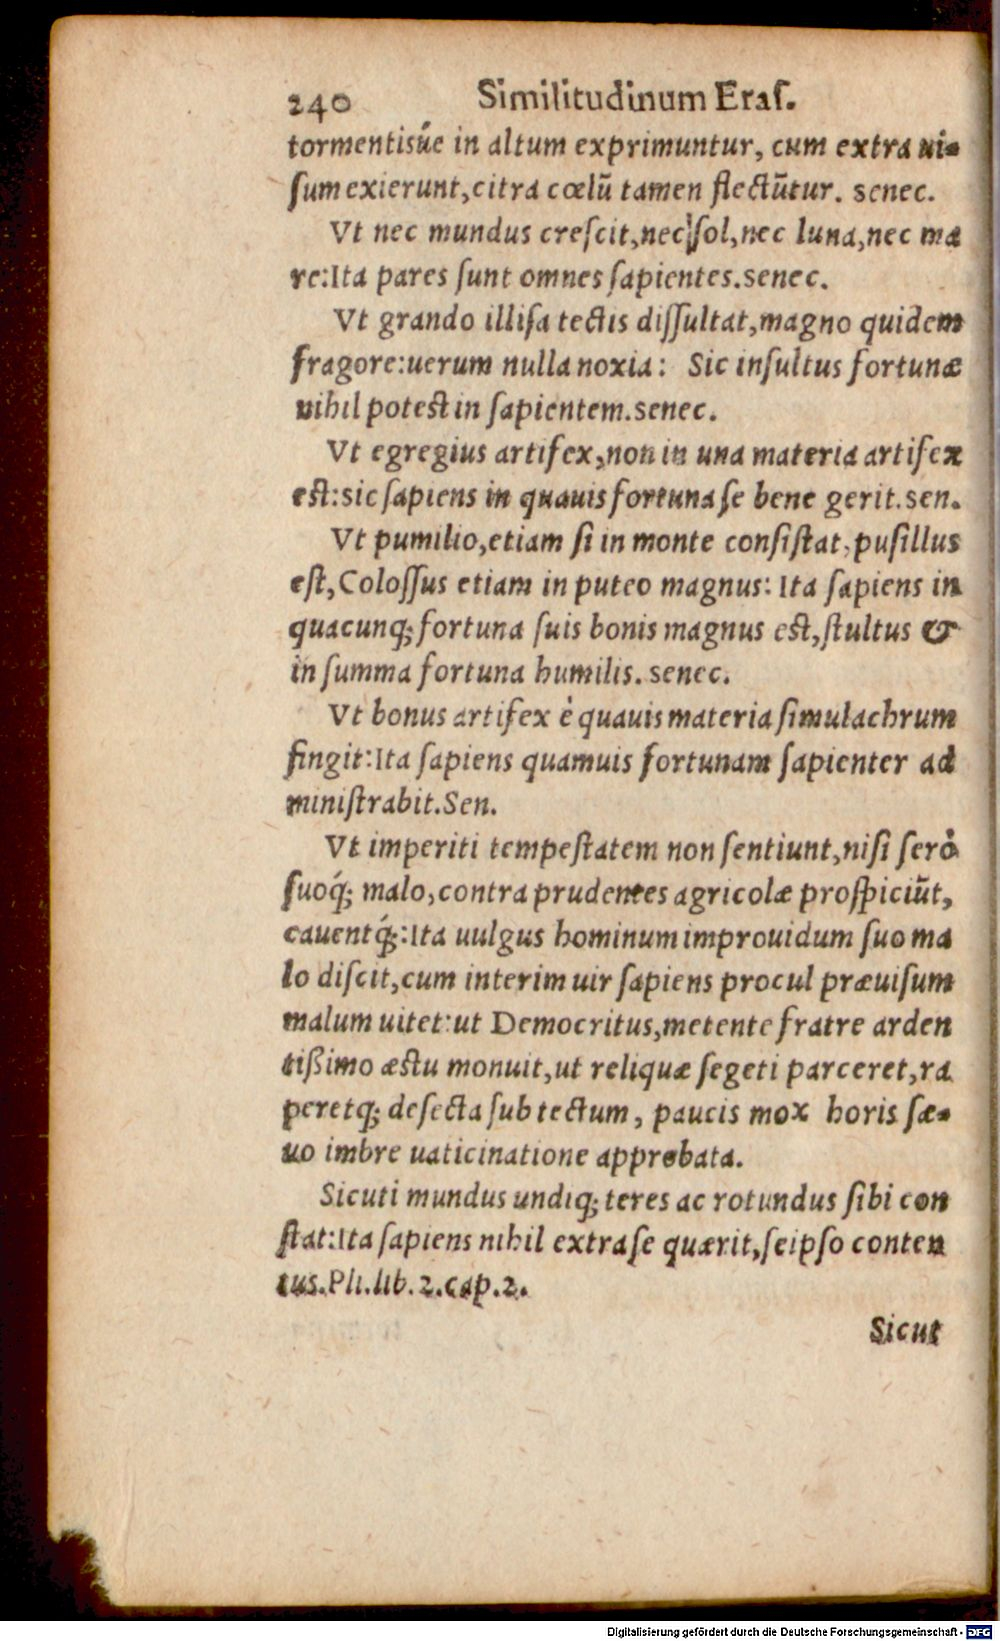 240 Similitudinum Eraſ.
tormentisúe in altum exprimuntur, cum extra ui-
ſum exierunt, citra cœlũ tamen flectũtur. senec.
Vt nec mundus creſcit, nec ſol, nec luna, nec ma
re: Ita pares ſunt omnes ſapientes. senec.
Vt grando illiſa tectis diſſultat, magno quidem
fragore: uerum nulla noxia: Sic inſultus fortunæ
nihil potest in ſapientem. senec.
Vt egregius artifex, non in una materia artifex
est: sic ſapiens in quauis fortuna ſe bene gerit. sen.
Vt pumilio, etiam ſi in monte conſiſtat, puſillus
eſt, Coloſſus etiam in puteo magnus: Ita ſapiens in
quacunq; fortuna ſuis bonis magnus est, ſtultus &
in ſumma fortuna humilis. senec.
Vt bonus artifex è quauis materia ſimulachrum
fingit: Ita ſapiens quamuis fortunam ſapienter ad
miniſtrabit. Sen.
Vt imperiti tempeſtatem non ſentiunt, niſi ſerò
ſuoq́; malo, contra prudentes agricolæ proſpiciũt,
cauentq́;: Ita uulgus hominum improuidum ſuo ma
lo diſcit, cum interim uir ſapiens procul præuiſum
malum uitet: ut Democritus, metente fratre arden
tißimo æstu monuit, ut reliquæ ſegeti parceret, ra
peretq; deſecta ſub tectum, paucis mox horis ſæ-
uo imbre uaticinatione approbata.
Sicuti mundus undiq; teres ac rotundus ſibi con
ſtat: Ita ſapiens nihil extra ſe quærit, ſeipſo conten
tus. Pli. lib. 2. cap. 2.
Sicut
Digitalisierung gefördert durch die Deutsche Forschungsgemeinschaft - DFG